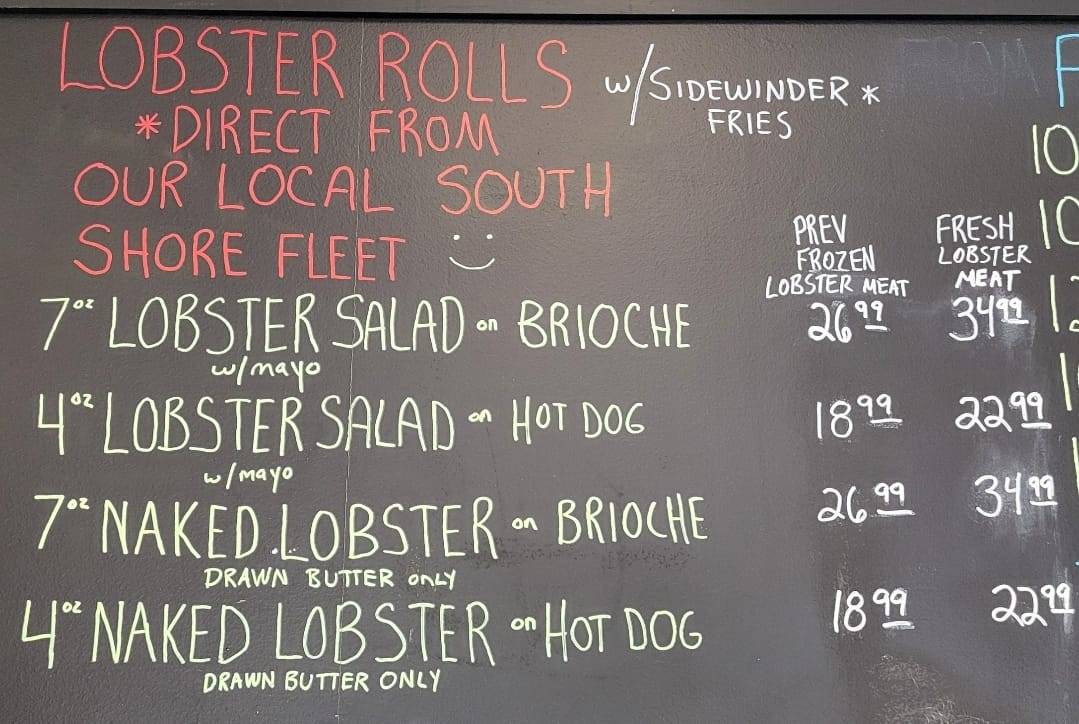 LOBSTER ROLLS w/SIDEWINDER *
FRIES
*DIRECT FROM
OUR LOCAL SOUTH
SHORE FLEET
PREV
FROZEN
LOBSTER MEAT
FRESH
LOBSTER
MEAT
7oz LOBSTER SALAD on BRIOCHE 26 99 34 99
w/mayo
4oz LOBSTER SALAD on HOT DOG 18 99 22 99
w/mayo
7oz NAKED LOBSTER on BRIOCHE 26 99 34 99
DRAWN BUTTER ONLY
4oz NAKED LOBSTER on HOT DOG 18 99 22 99
DRAWN BUTTER ONLY
10
10